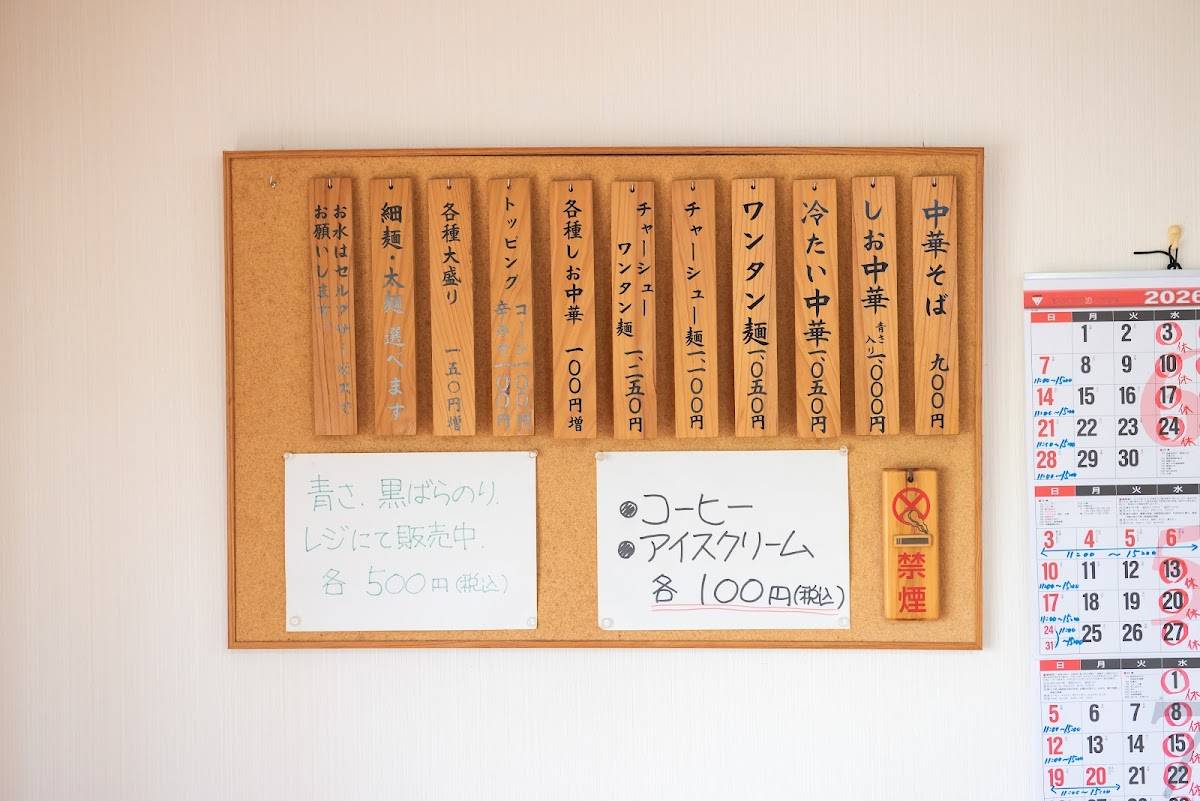 中華そば 九〇〇円
しお中華 青さ入り 一、〇〇〇円
冷たい中華 一、〇五〇円
ワンタン麺 一、〇五〇円
チャーシュー麺 一、一〇〇円
チャーシュー
ワンタン麺 一、二五〇円
各種しお中華 一〇〇円増
トッピング
各種大盛り 一五〇円増
細麺・太麺 選べます
お水はセルフサービスです
お願いします。
青さ、黒ばらのり、
レジにて販売中、
各 500円(税込)
●コーヒー
●アイスクリーム
各 100円(税込)
禁煙
2026
日 月 火 水
1 2 3 休
7 8 9 10 休
11:00~15:00
14 15 16 17 休
11:00~15:00
21 22 23 24 休
11:00~15:00
28 29 30
11:00~15:00
日 月 火 水
3 4 5 6
11:00 ~ 15:00
10 11 12 13 休
11:00~15:00
17 18 19 20 休
11:00~15:00
24 31 25 26 27 休
11:00 ~15:00
日 月 火 水
1 休
5 6 7 8 休
11:00~15:00
12 13 14 15 休
11:00~15:00
19 20 21 22 休
11:00~15:00